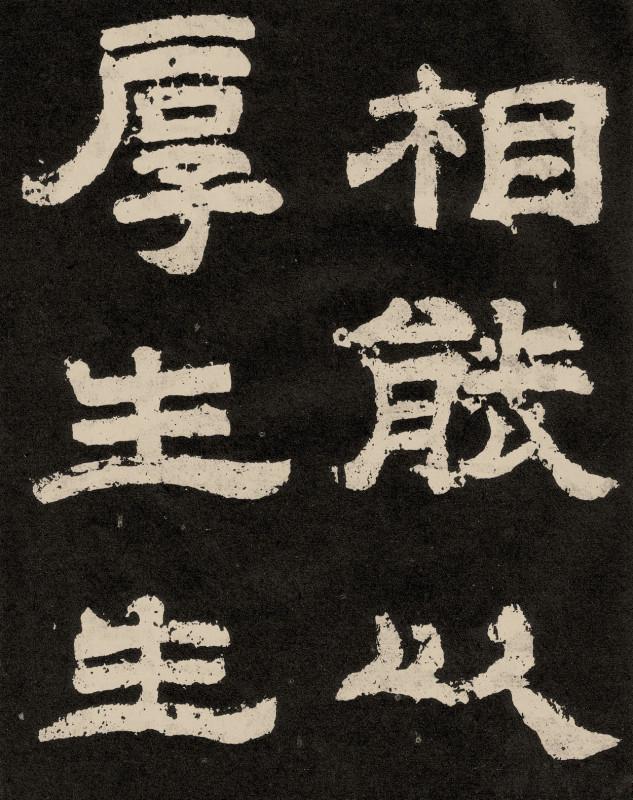 相能以
厚生生